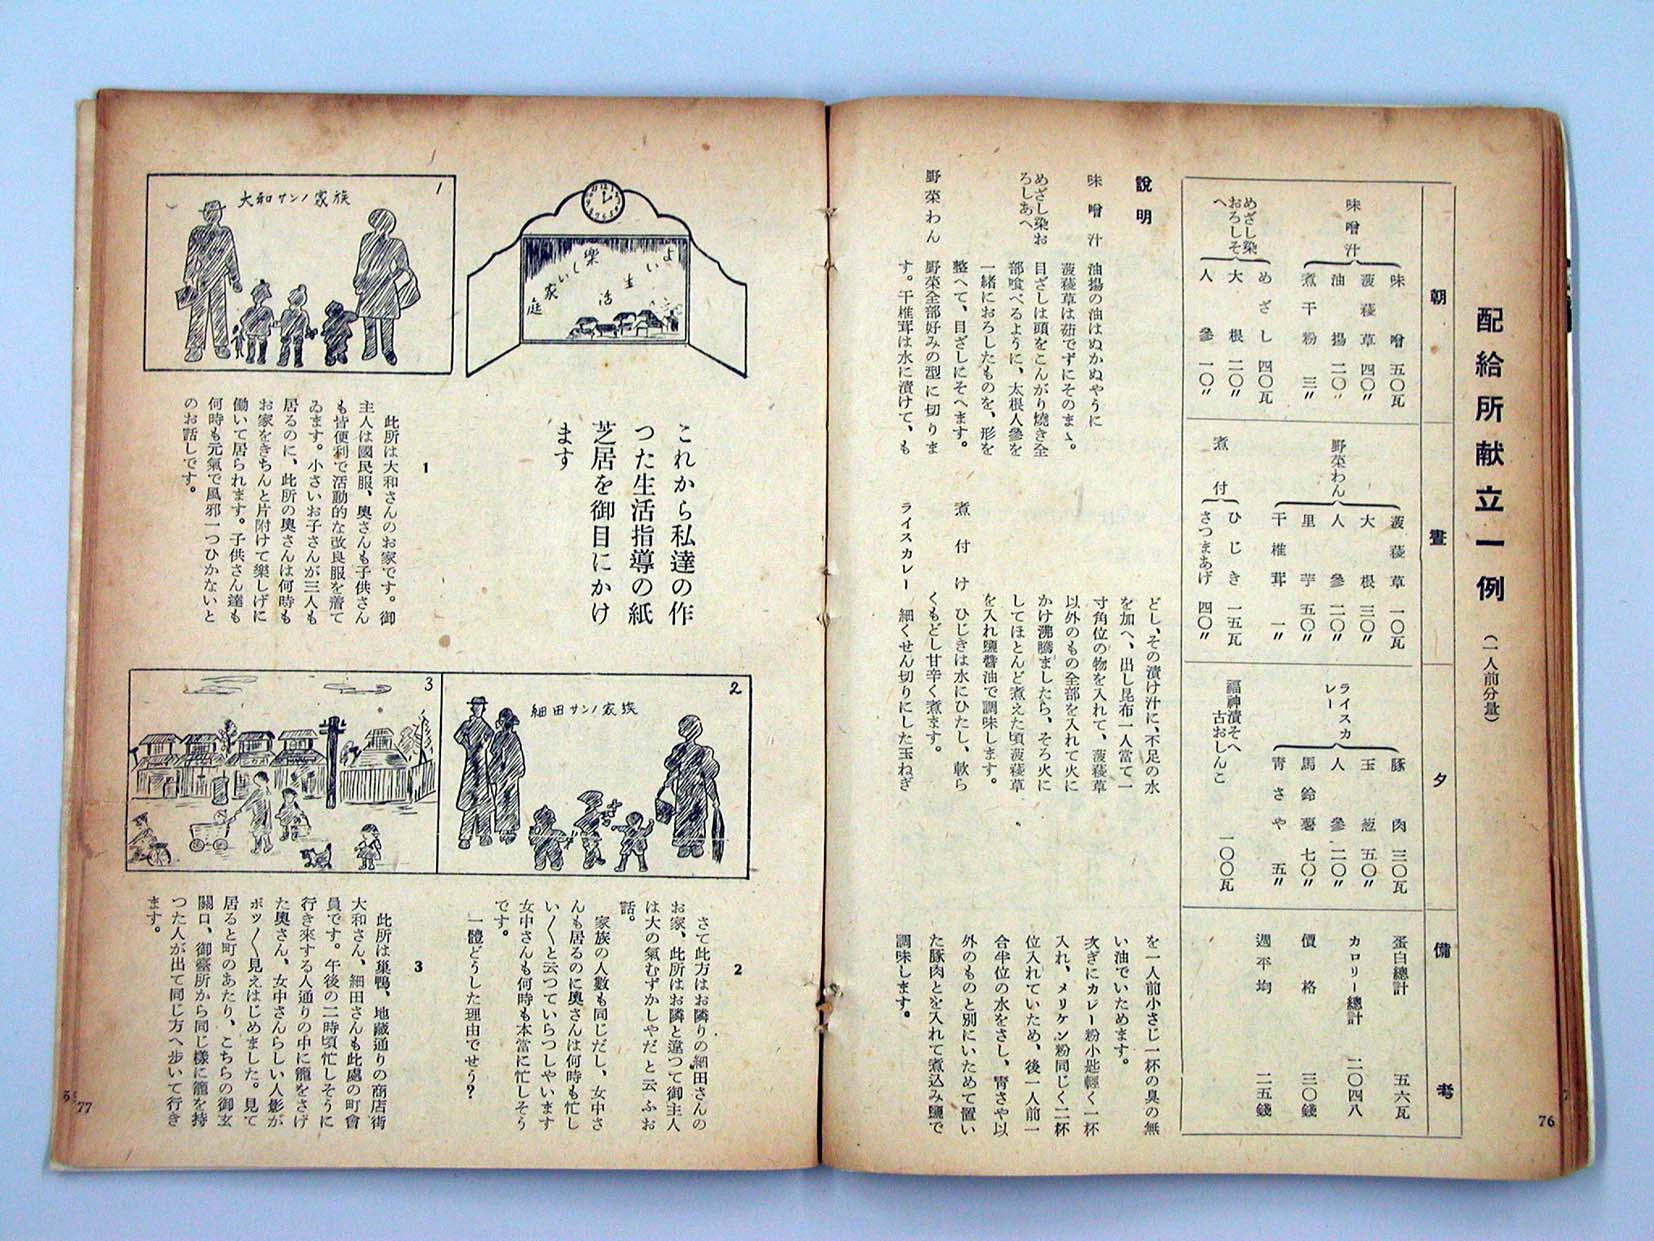 配給所献立一例 (一人前分量)
朝
味噌汁
味噌 五〇瓦
菠薐草 四〇〃
油揚 二〇〃
煮干粉 三〃
めざし染
おろしそ
へ
めざし 四〇瓦
大根 二〇〃
人參 一〇〃
晝
野菜わん
菠薐草 一〇瓦
大根 三〇〃
人參 二〇〃
里芋 五〇〃
干椎茸 一〃
煮付
ひじき 一五瓦
さつまあげ 四〇〃
夕
ライスカ
レー
豚肉 三〇瓦
玉葱 五〇〃
人參 二〇〃
馬鈴薯 七〇〃
青さや 五〃
福神漬そへ
古おしんこ 一〇〇瓦
備考
蛋白總計 五六瓦
カロリー總計 二〇四八
價格 三〇錢
週平均 二五錢
說明
味噌汁 油揚の油はぬかぬやうに
菠薐草は茹でずにそのまゝ。
めざし染お
ろしあへ
目ざしは頭をこんがり燒き全
部喰べるように、大根人參を
一緖におろしたものを、形を
整へて、目ざしにそへます。
野菜わん 野菜全部好みの型に切りま
す。干椎茸は水に漬けて、も
どし、その漬け汁に、不足の水
を加へ、出し昆布一人當て一
寸角位の物を入れて、菠薐草
以外のもの全部を入れて火に
かけ沸騰ましたら、そろ火に
してほとんど煮えた頃菠薐草
を入れ鹽醬油で調味します。
煮付け ひじきは水にひたし、軟ら
くもどし甘辛く煮ます。
ライスカレー 細くせん切りにした玉ねぎ
を一人前小さじ一杯の臭の無
い油でいためます。
次ぎにカレー粉小匙輕く一杯
入れ、メリケン粉同じく二杯
位入れていため、後一人前一
合半位の水をさし、靑さや以
外のものと別にいためて置い
た豚肉とを入れて煮込み鹽で
調味します。
76
よい生活
樂しい家庭
これから私達の作
つた生活指導の紙
芝居を御目にかけ
ます
1
大和サンノ家族
1
此所は大和さんのお家です。御
主人は國民服、奧さんも子供さん
も皆便利で活動的な改良服を着て
ゐます。小さいお子さんが三人も
居るのに、此所の奧さんは何時も
お家をきちんと片附けて樂しげに
働いて居られます。子供さん達も
何時も元氣で風邪一つひかないと
のお話しです。
2
細田サンノ家族
3
2
さて此方はお隣りの細田さんの
お家、此所はお隣と違つて御主人
は大の氣むずかしやだと云ふお
話。
家族の人數も同じだし、女中さ
んも居るのに奧さんは何時も忙し
い〱と云つていらつしやいます
女中さんも何時も本當に忙しそう
です。
一體どうした理由でせう?
3
此所は巢鴨、地藏通りの商店街
大和さん、細田さんも此處の町會
員です。午後の二時頃忙しそうに
行き來する人通りの中に籠をさげ
た奧さん、女中さんらしい人影が
ボツ〱見えはじめました。見て
居ると町のあたり、こちらの御玄
關口、御臺所から同じ樣に籠を持
つた人が出て同じ方へ步いて行き
ます。
77